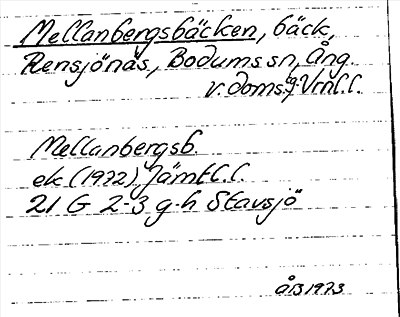 Mellanbergsbäcken, bäck,
Rensjönäs, Bodums sn, Ång.
v. doms.g, Vrnl.l.
Mellanbergsb.
ek (1972) Jämtl.l.
21 G 2-3 g-h Stavsjö
ÅB 1973